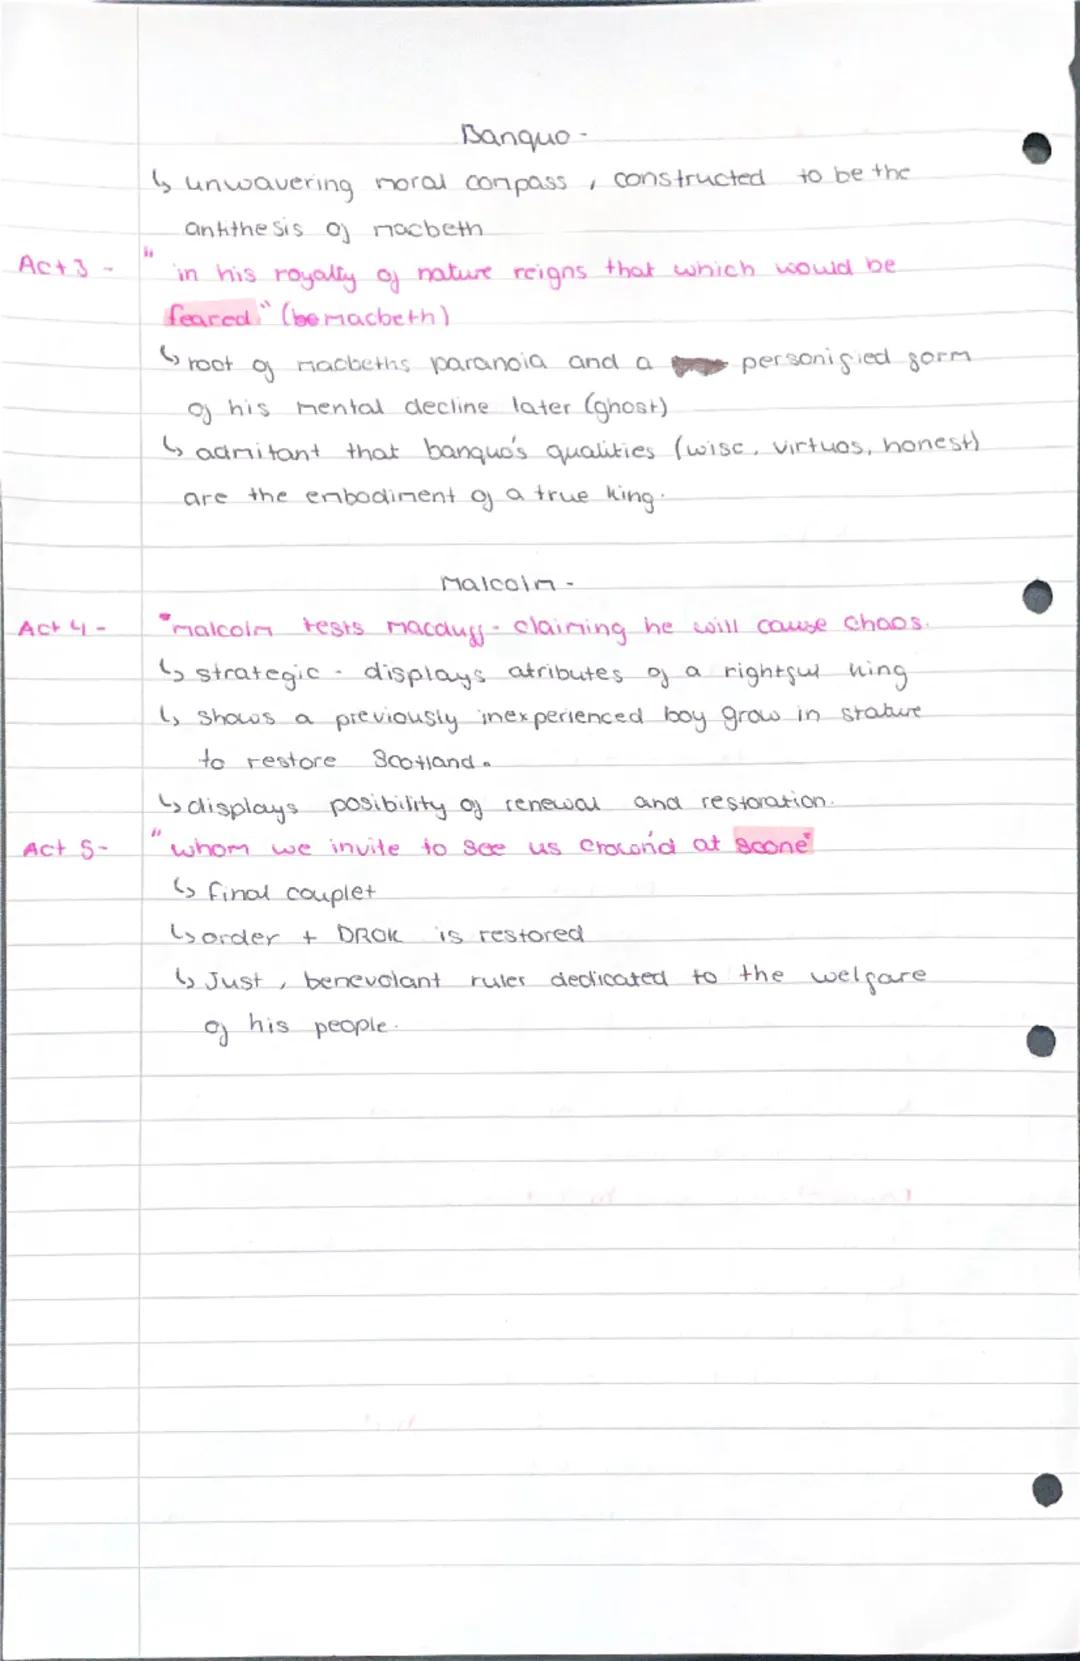 Banquo -
↳ unwavering moral compass, constructed to be the
antithesis of macbeth
Act 3 - "in his royalty of nature reigns that which would be
feared" (macbeth)
↳ root of macbeths paranoia and a personified form
of his mental decline later (ghost)
↳ admitant that banquo's qualities (wise, virtuos, honest)
are the embodiment of a true king.
Malcolm -
Act 4 - "malcolm tests macduff - claiming he will cause chaos.
↳ strategic - displays atributes of a rightful king
↳ shows a previously inexperienced boy grow in stature
to restore Scotland.
↳ displays posibility of renewal and restoration.
Act 5 - "whom we invite to see us crown'd at scone"
↳ final couplet
↳ order + DROK is restored
↳ Just, benevolant ruler dedicated to the welfare
of his people.